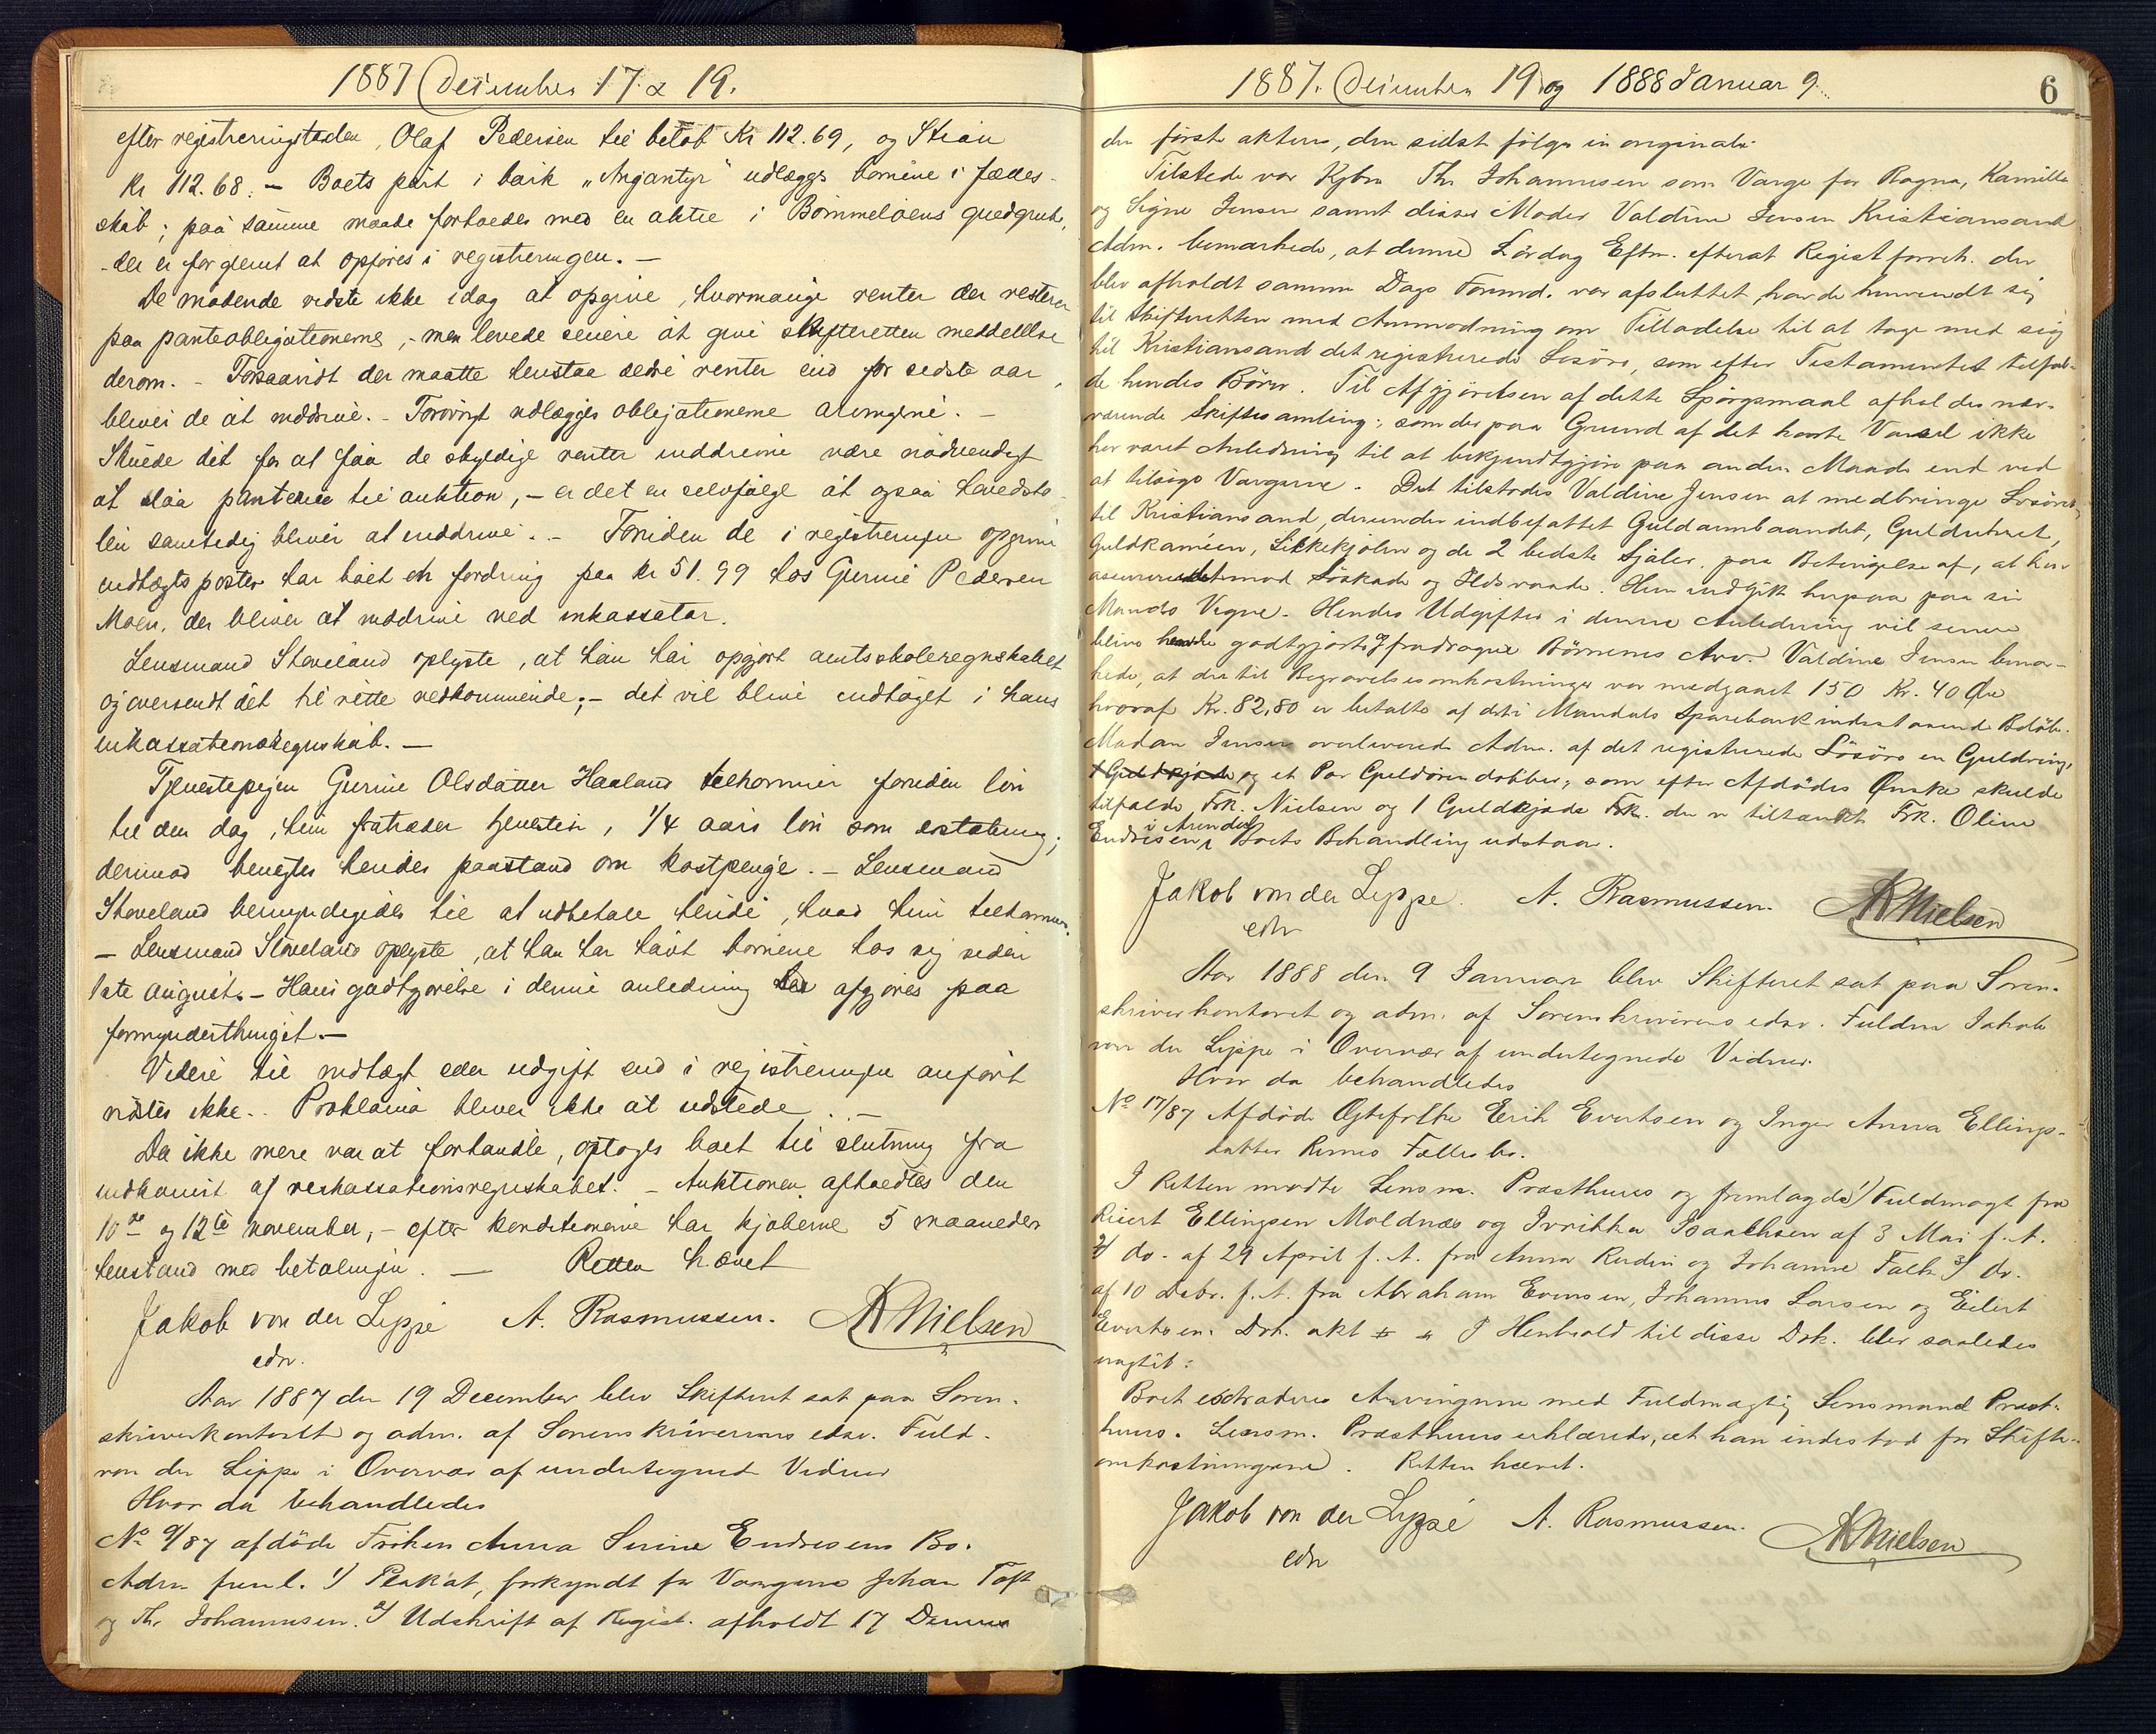 1887 December 17. & 19.
efter registreringstaxten, Olaf Pedersen til beløb Kr 112.69, og Stian
Kr 112.68. – Boets part i bark „Angantyr" udlægges børnene i fælles-
skab; paa samme maade forholdes med en aktie i Bømmeløens guldgrube,
der er forglemt at opføres i registreringen. –
De mødende vidste ikke idag at opgive, hvormange renter der resterer
paa panteobligationerne, – men lovede senere at give skifteretten meddelelse
derom. – Forsaavidt der maatte henstaa ældre renter end for sidste aar,
bliver de at inddrive. – Forøvrigt udlægges obligationerne arvingerne. –
Skulde det for at faa de skyldige renter inddrevne være nødvendigt
at slaa panterne til auktion, – er det en selvfølge at ogsaa hovedsto-
len samtidig bliver at inddrive. – Foruden de i registreringen opgivne
indtægtsposter har boet en fordring paa kr 51.99 hos Gunne Pedersen
Moen, der bliver at inddrive ved inkassator.
Lensmand Stoveland oplyste, at han har opgjort amtsskoleregnskabet
og oversendt det til rette vedkommende; – det vil blive indtaget i hans
inkassationsregnskab. –
Tjenestepigen Gurine Olsdatter Haaland tilkommer foruden løn
til den dag, hun fratræder tjenesten, 1/4 aars løn som erstatning;
derimod benegtes hendes paastand om kostpenge. – Lensmand
Stoveland bemyndigedes til at udbetale hende, hvad hun tilkommer.
– Lensmand Stoveland oplyste, at han har havt børnene hos sig siden
1ste august. – Hans godtgjørelse i denne anledning afgjøres paa
formynderthinget. –
Videre til indtægt eller udgift end i registreringen anført
vidstes ikke. – Proklama bliver ikke at udstede. –
Da ikke mere var at forhandle, optoges boet til slutning fra
indkomst af inkassationsregnskabet. – Auktionen afholdtes den
10de og 12te november, – efter konditionerne har kjøberne 5 maaneders
henstand med betalingen. – Retten hævet
Jakob von der Lippe A. Rasmussen. AKNielsen
edv.
Aar 1887 den 19 December blev Skifteret sat paa Soren-
skriverkontoret og adm. af Sorenskriverens edsv. Fuldm.
von der Lippe i Overvær af undertegnede Vidner
Hvor da behandledes
No 9/87 afdøde Frøken Anna Serine Endresens Bo.
Adm. freml. 1) Plakat, forkyndt for Vargerne Johan Toft
og Thr. Johannesen. 2) Udskrift af Regist. afholdt 17 Dennes
1887. December 19 og 1888 Januar 9. 6
den første akteres, den sidst følger in originali.
Tilstede var Kjbm Thr. Johannesen som Varge for Ragna, Kamilla
og Signe Jensen samt disses Moder Valdine Jensen Kristiansand
Adm. bemærkede, at denne Lørdag Eftm. efterat Registforretn. der
blev afholdt samme Dags Formd. var afsluttet, havde henvendt sig
til Skifteretten med Anmodning om Tilladelse til at tage med sig
til Kristiansand det registrerede Løsøre, som efter Testamentet tilfal-
de hendes Børn. Til Afgjørelsen af dette Spørgsmaal afholdes nær-
værende Skiftesamling, som der paa Grund af det korte Varsel ikke
har været Anledning til at bekjendtgjøre paa anden Maade end ved
at tilsige Vargerne. Det tilstodes Valdine Jensen at medbringe Løsøret
til Kristiansand, derunder indbefattet Guldarmbaandet, Gulduhret,
Guldkaméen, Silkekjolen og de 2 bedste Sjaler, paa Betingelse af, at hun
assurerer det mod Søskade og Ildsvaade. Hun indgik herpaa paa sin
Mands Vegne. Hendes Udgifter i denne Anledning vil senere
blive hende godtgjort og fradraget Børnenes Arv. Valdine Jensen bemær-
kede, at der til Begravelsesomkostninger var medgaaet 150 Kr. 40 Øre
hvoraf Kr. 82,80 er betalte af det i Mandals Sparebank indestaaende Beløb.
Madam Jensen overleverede Adm. af det registrerede Løsøre en Guldring,
1 Guldkjæde og et Par Guldørendobber, som efter Afdødes Ønske skulde
tilfalde Frk. Nielsen og 1 Guldkjæde Frk. der er tiltænkt Frk. Oline
Endresen i Arendal, Boets Behandling udstaar.
Jakob von der Lippe. A. Rasmussen. AKNielsen
edv
Aar 1888 den 9 Januar blev Skifteret sat paa Soren-
skriverkontoret og adm. af Sorenskriverens edsv. Fuldm Jakob
von der Lippe i Overvær af undertegnede Vidner.
Hvor da behandledes
No 17/87 Afdøde Ægtefolke Erik Evertsen og Inger Anna Ellings-
datter Rennes Fællesbo.
I Retten mødte Lensm. Præsthuus og fremlagde 1) Fuldmagt fra
Reiert Ellingsen Moldnæs og Isaachsen af 3 Mai f. A.
2) do. af 29 April f. A. fra Anna Rudin og Johanne Falk 3) do.
af 10 Debr. f. A. fra Abraham Evensen, Johannes Larsen og Eilert
Evertsen. Dok. akt I Henhold til disse Dok. blev saaledes
eragtet:
Boet extraderes Arvingerne med Fuldmægtig Lensmand Præst-
huus. Lensm. Præsthuus erklærede, at han indestod for Skifte-
omkostningerne. Retten hævet.
Jakob von der Lippe A. Rasmussen. AKNielsen
edv